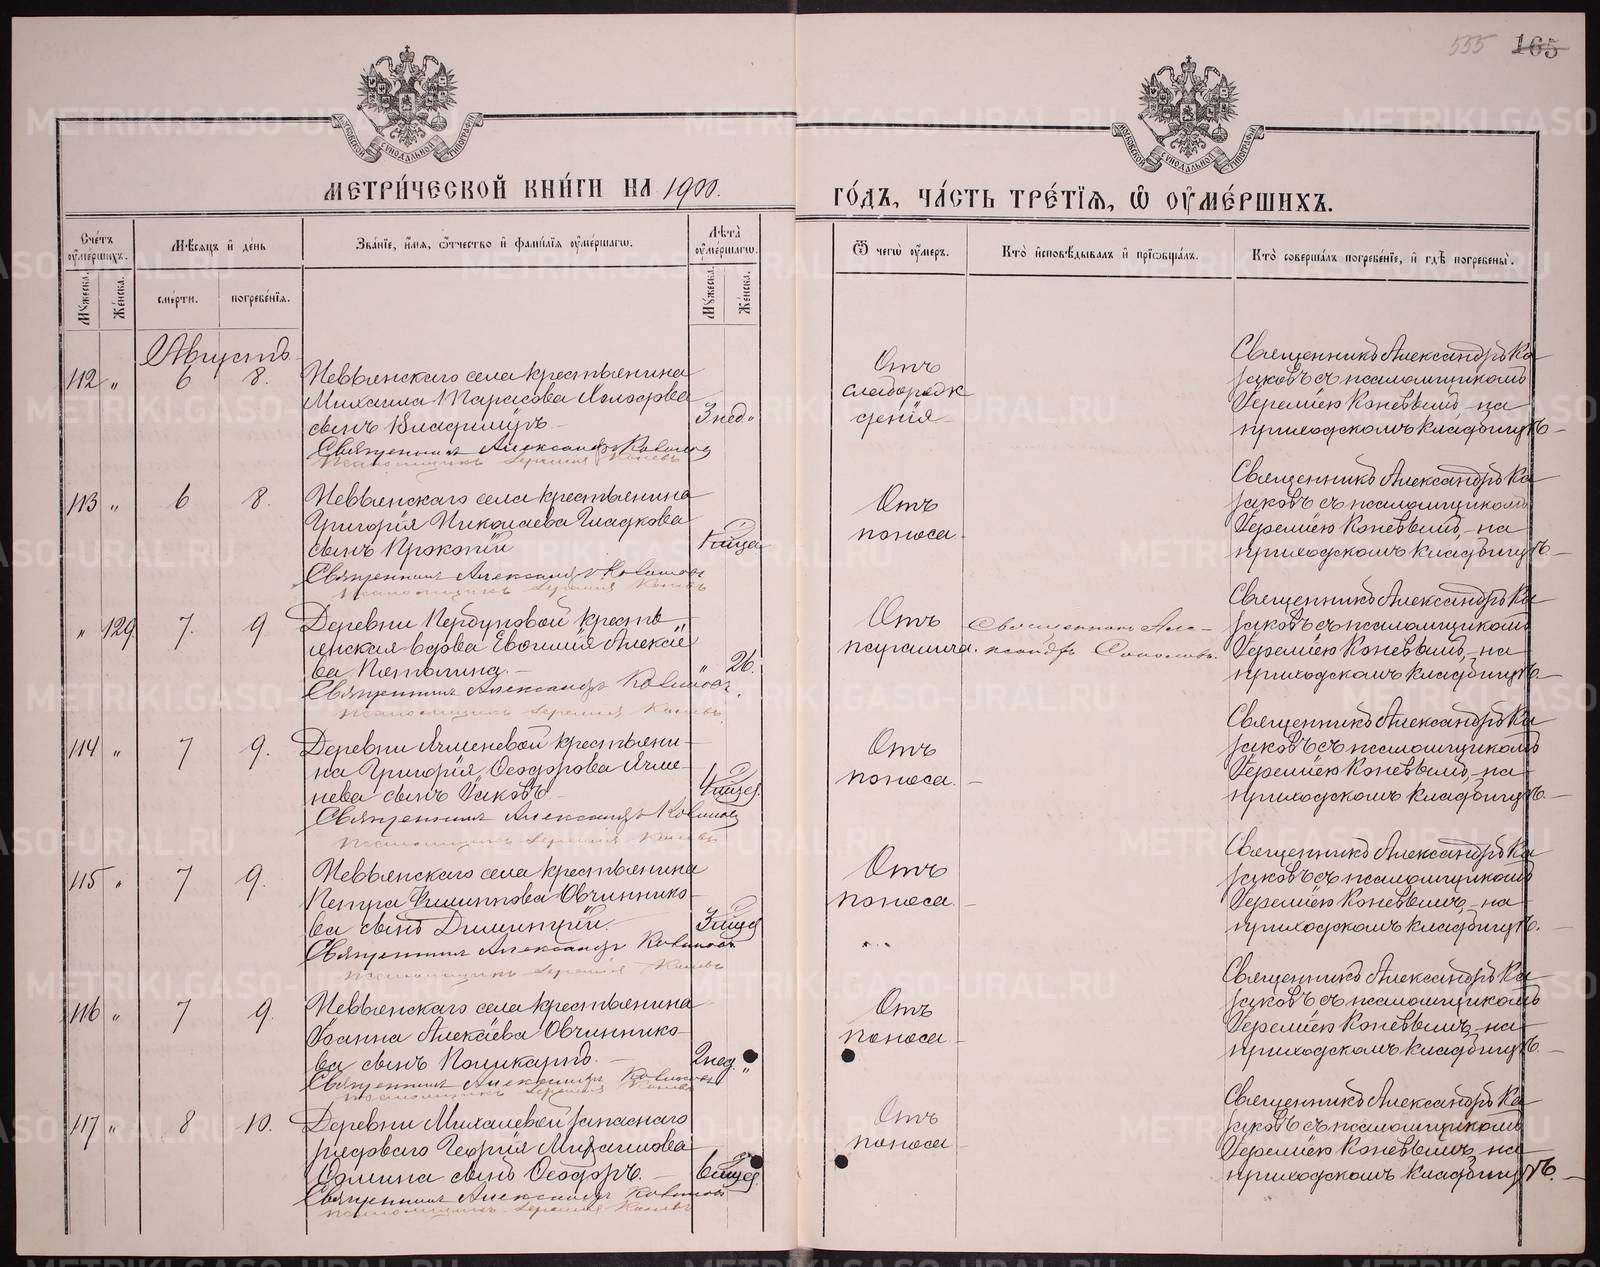 535 165
МЕТРИ́ЧЕСКОЙ КНИ́ГИ НА 1900.
ГО́ДЪ, ЧА́СТЬ ТРЕ́ТІѦ, Ѡ҆ ОУ҆МЕ́РШИХЪ.
Счетъ оумершихъ.
Мужеска.
Женска.
Мѣсяцъ и день
смерти.
погребенія.
Званіе, имя, отчество и фамилія оумершаго.
Лѣта оумершаго.
Мужеска.
Женска.
Ѿ чего оумеръ.
Кто исповѣдывалъ и пріобщалъ.
Кто совершалъ погребеніе, и гдѣ погребены.
Августъ
112 „ 6 8.
Невьянскаго села крестьянина
Михаила Тарасова
сынъ Владиміръ
Священник Александр
Псаломщикъ Іеремія Коневъ
3 нед. „
Отъ
слаборож
денія
Священникъ Александръ Ка
заковъ съ псаломщикомъ
Іереміею Коневымъ, на
приходскомъ кладбищѣ
113 „ 6 8.
Невьянскаго села крестьянина
Григорія Николаева Гладкова
сынъ Прокопій
Священник Александр
Псаломщикъ Іеремія Коневъ
Отъ
поноса
Священникъ Александръ Ка
заковъ съ псаломщикомъ
Іереміею Коневымъ, на
приходскомъ кладбищѣ
„ 129 7. 9
Деревни крестьянская
вдова Евѳимія Алексѣе
ва
Священник Александр
Псаломщикъ Іеремія Коневъ
„ 26.
Отъ
паралича.
Священникъ Але
ксандръ Соколовъ.
Священникъ Александръ Ка
заковъ съ псаломщикомъ
Іереміею Коневымъ, на
приходскомъ кладбищѣ
114 „ 7 9.
Деревни Ячменевой крестьяни
на Григорія Ѳеодорова Ячме
нева сынъ Іаковъ
Священник Александр
Псаломщикъ Іеремія Коневъ
4 мѣсяц.
Отъ
поноса.
Священникъ Александръ Ка
заковъ съ псаломщикомъ
Іереміею Коневымъ, на
приходскомъ кладбищѣ
115 „ 7 9.
Невьянскаго села крестьянина
Петра Филиппова Овчиннико
ва сынъ Димитрій.
Священник Александр
Псаломщикъ Іеремія Коневъ
Отъ
поноса.
Священникъ Александръ Ка
заковъ съ псаломщикомъ
Іереміею Коневымъ, на
приходскомъ кладбищѣ.
116 „ 7 9.
Невьянскаго села крестьянина
Іоанна Алексѣева Овчиннико
ва сынъ Поликарпъ.
Священник Александр
Псаломщикъ Іеремія Коневъ
2 нед. „
Отъ
поноса
Священникъ Александръ Ка
заковъ съ псаломщикомъ
Іереміею Коневымъ, на
приходскомъ кладбищѣ.
117 „ 8 10.
Деревни Михалевой запаснаго
рядового Георгія
сынъ Ѳеодоръ.
Священник Александр
Псаломщикъ Іеремія Коневъ
Отъ
поноса
Священникъ Александръ Ка
заковъ съ псаломщикомъ
Іереміею Коневымъ, на
приходскомъ кладбищѣ.
METRIKI.GASO-URAL.RU